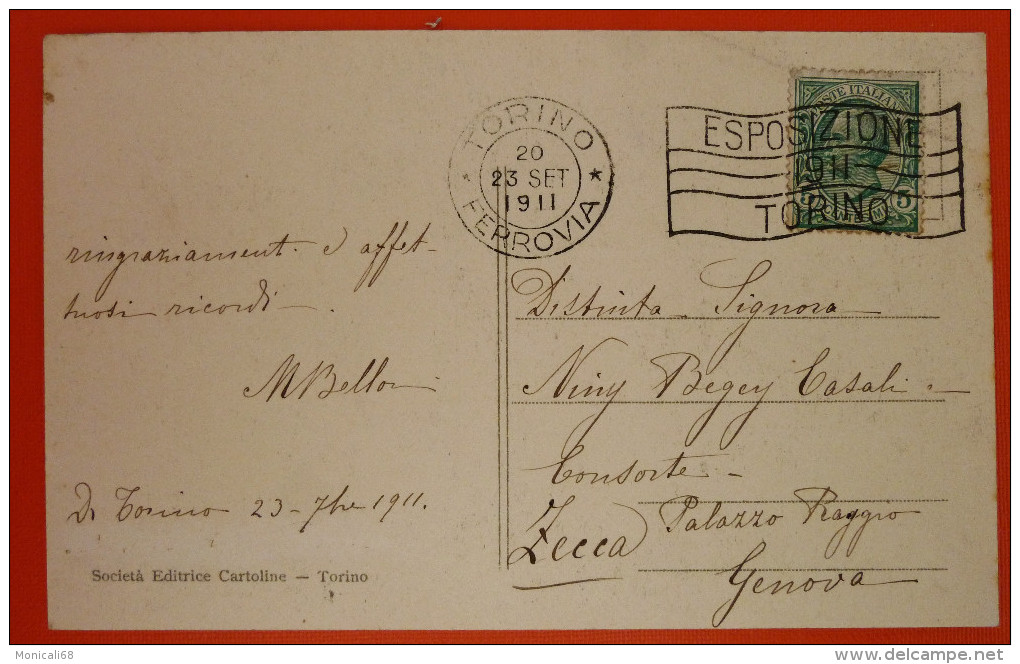 TORINO
20
23 SET
1911
FERROVIA
ESPOSIZIONE
1911
TORINO
POSTE ITALIANE
5 5
ringraziamenti e affet-
tuosi ricordi.
MBelloni
Di Torino 23-7bre 1911.
Società Editrice Cartoline — Torino
Distinta Signora
Niny Begey Casali
Consorte
Zecca
Palazzo Raggio
Genova
Monicali68
delcampe.net